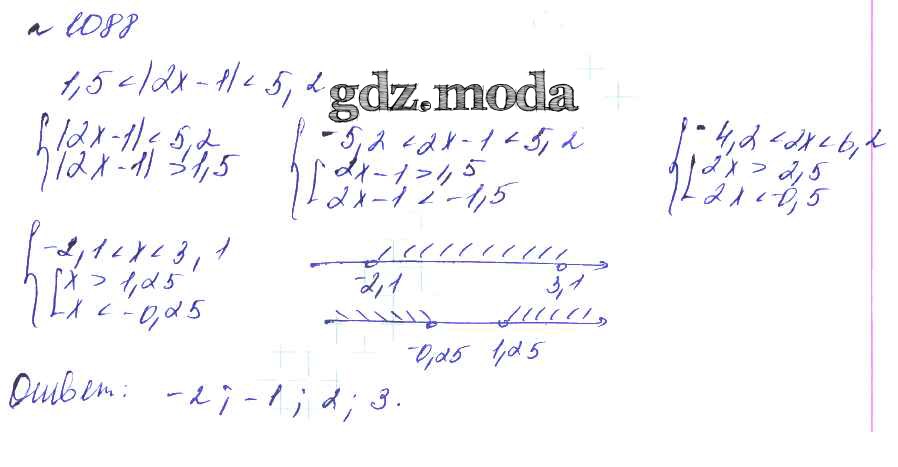 № 1088
1,5 < |2x - 1| < 5,2
gdz.moda
|2x - 1| < 5,2
|2x - 1| > 1,5
-5,2 < 2x - 1 < 5,2
2x - 1 > 1,5
2x - 1 < -1,5
-4,2 < 2x < 6,2
2x > 2,5
2x < -0,5
-2,1 < x < 3,1
x > 1,25
x < -0,25
-2,1 3,1
-0,25 1,25
Ответ: -2; -1; 2; 3.